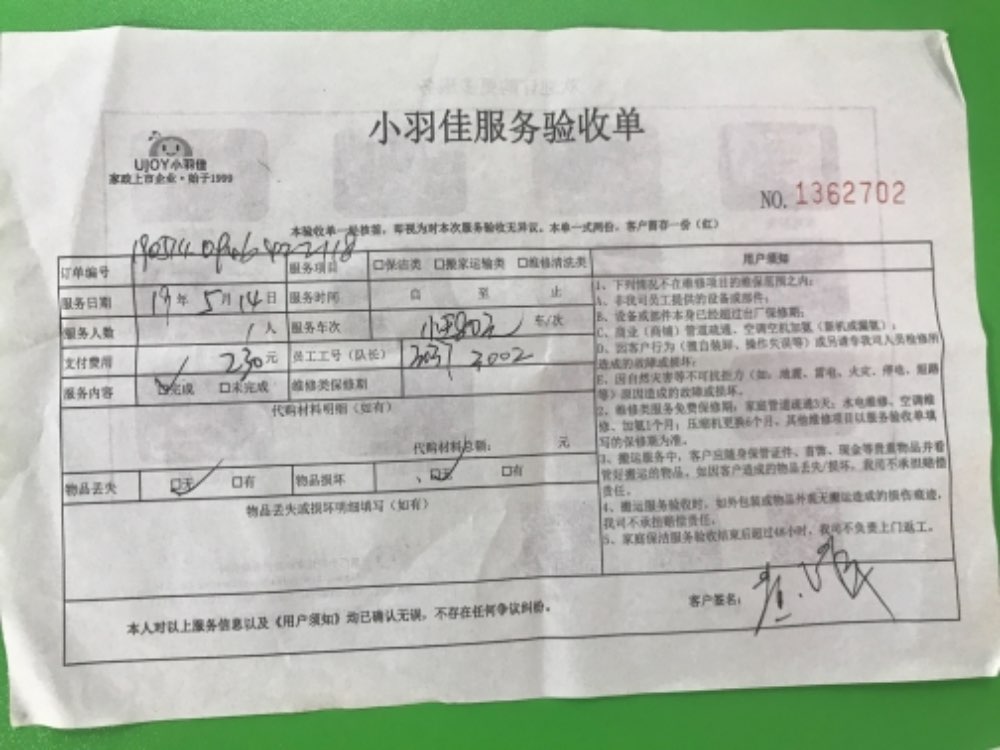 小羽佳服务验收单
UJOY小羽佳
家政上市企业·始于1999
NO. 1362702
本验收单一经核签，即视为对本次服务验收无异议。本单一式两份，客户留存一份（红）
订单编号 服务项目 □保洁类 □搬家运输类 □维修清洗类
服务日期 19年 5月14日 服务时间 自 至 止
服务人数 1人 服务车次 车/次
支付费用 230元 员工工号（队长） 3037 3002
服务内容 ☑完成 □未完成 维修类保修期
代购材料明细（如有）
代购材料总额： 元
物品丢失 ☑无 □有 物品损坏 ☑无 □有
物品丢失或损坏明细填写（如有）
用户须知
1、下列情况不在维修项目的维保范围之内：
A、非我司员工提供的设备或部件；
B、设备或部件本身已经超过出厂保修期；
C、商业（商铺）管道疏通、空调空机加氨（新机或漏氨）；
D、因客户行为（擅自装卸、操作失误等）或另请专我司人员检修所
造成的故障或损坏；
E、因自然灾害等不可抗拒力（如：地震、雷电、火灾、停电、短路
等）原因造成的故障或损坏。
2、维修类服务免费保修期：家庭管道疏通3天；水电维修、空调维
修、加氨1个月；压缩机更换6个月。其他维修项目以服务验收单填
写的保修期为准。
3、搬运服务中，客户应随身保管证件、首饰、现金等贵重物品并看
管好搬运的物品，如因客户造成的物品丢失/损坏，我司不承担赔偿
责任。
4、搬运服务验收时，如外包装或物品外观无搬运造成的损伤痕迹，
我司不承担赔偿责任。
5、家庭保洁服务验收结束后超过48小时，我司不负责上门返工。
客户签名：
本人对以上服务信息以及《用户须知》均已确认无误，不存在任何争议纠纷。